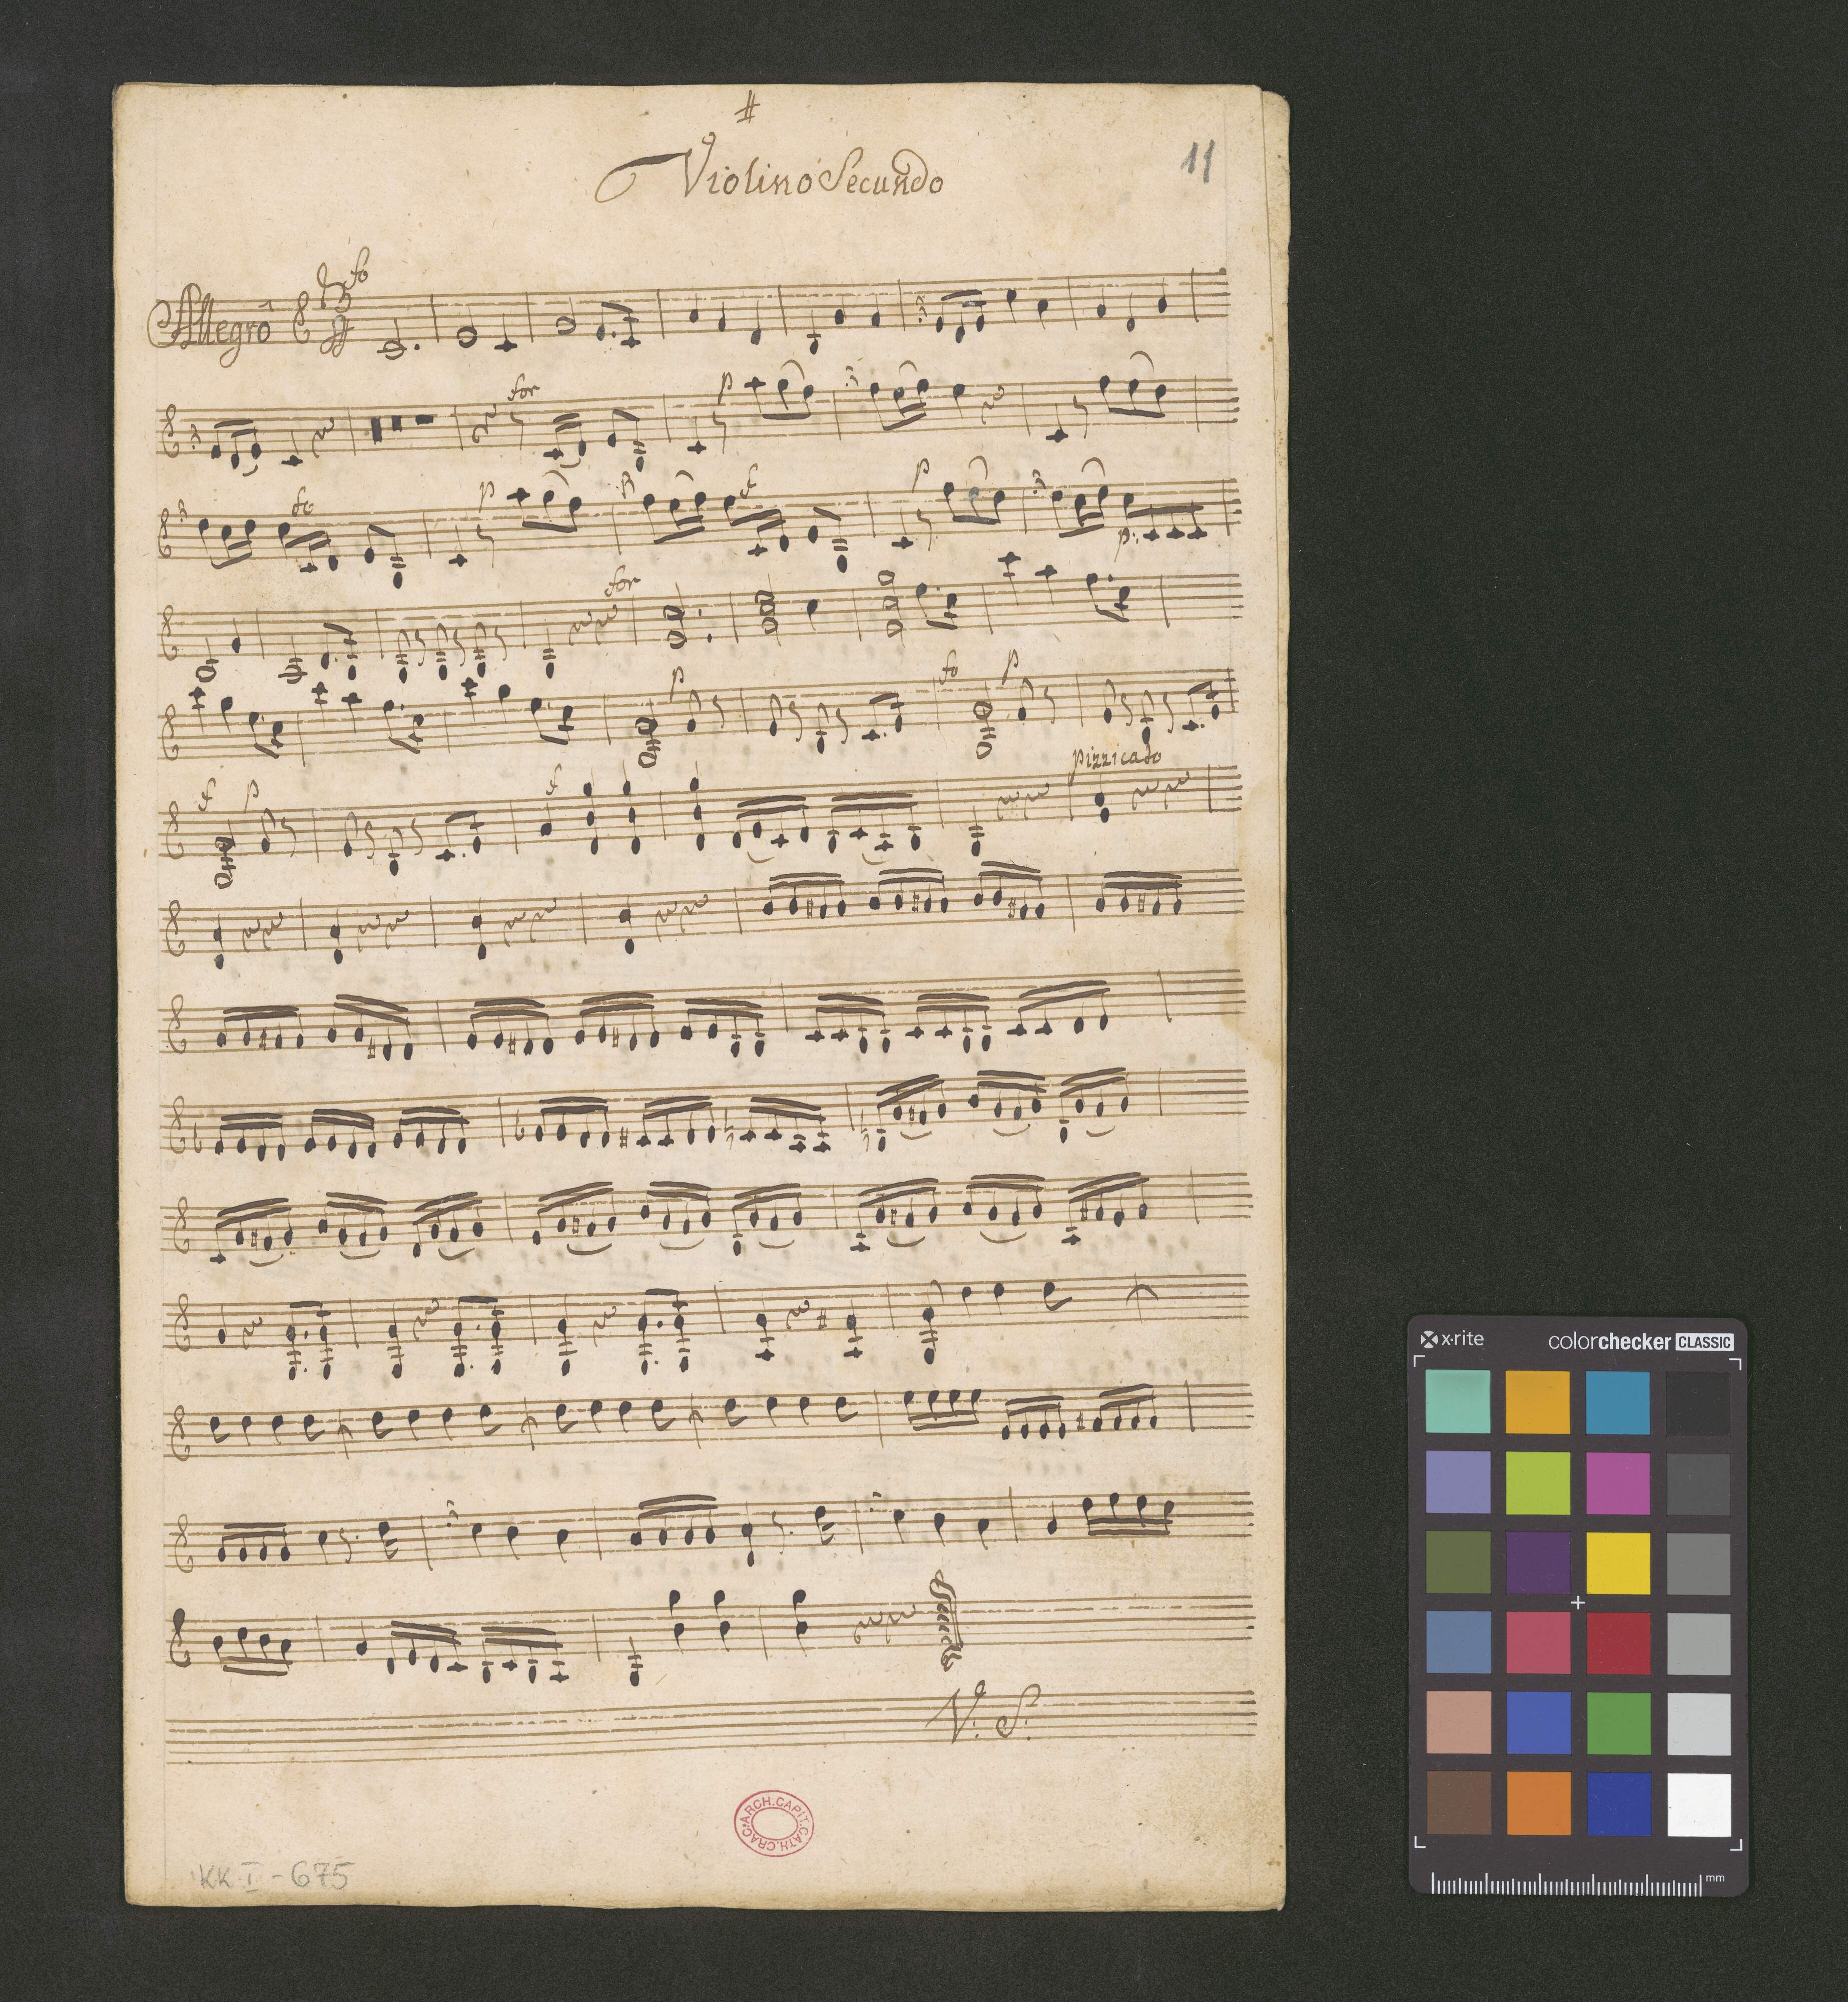 #
Violino Secundo
11
fo
Allegrô
for p
fo p p f p p:
for
p fo p
pizzicado
f p f
V: S:
ARCH.CAPIT.CATH.CRAC
KK I - 675
x-rite colorchecker CLASSIC
mm